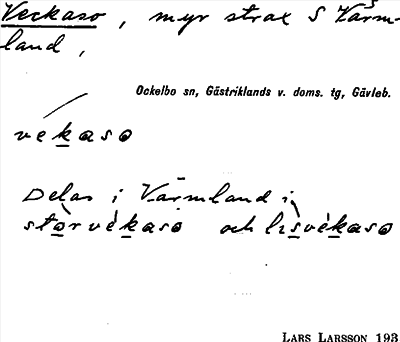 Veckaso, myr strax S Värm-
land,
Ockelbo sn, Gästriklands v. doms. tg, Gävleb.
vekaso
Delas i Värmland i
stòrvékaso och lìsvékaso
LARS LARSSON 193